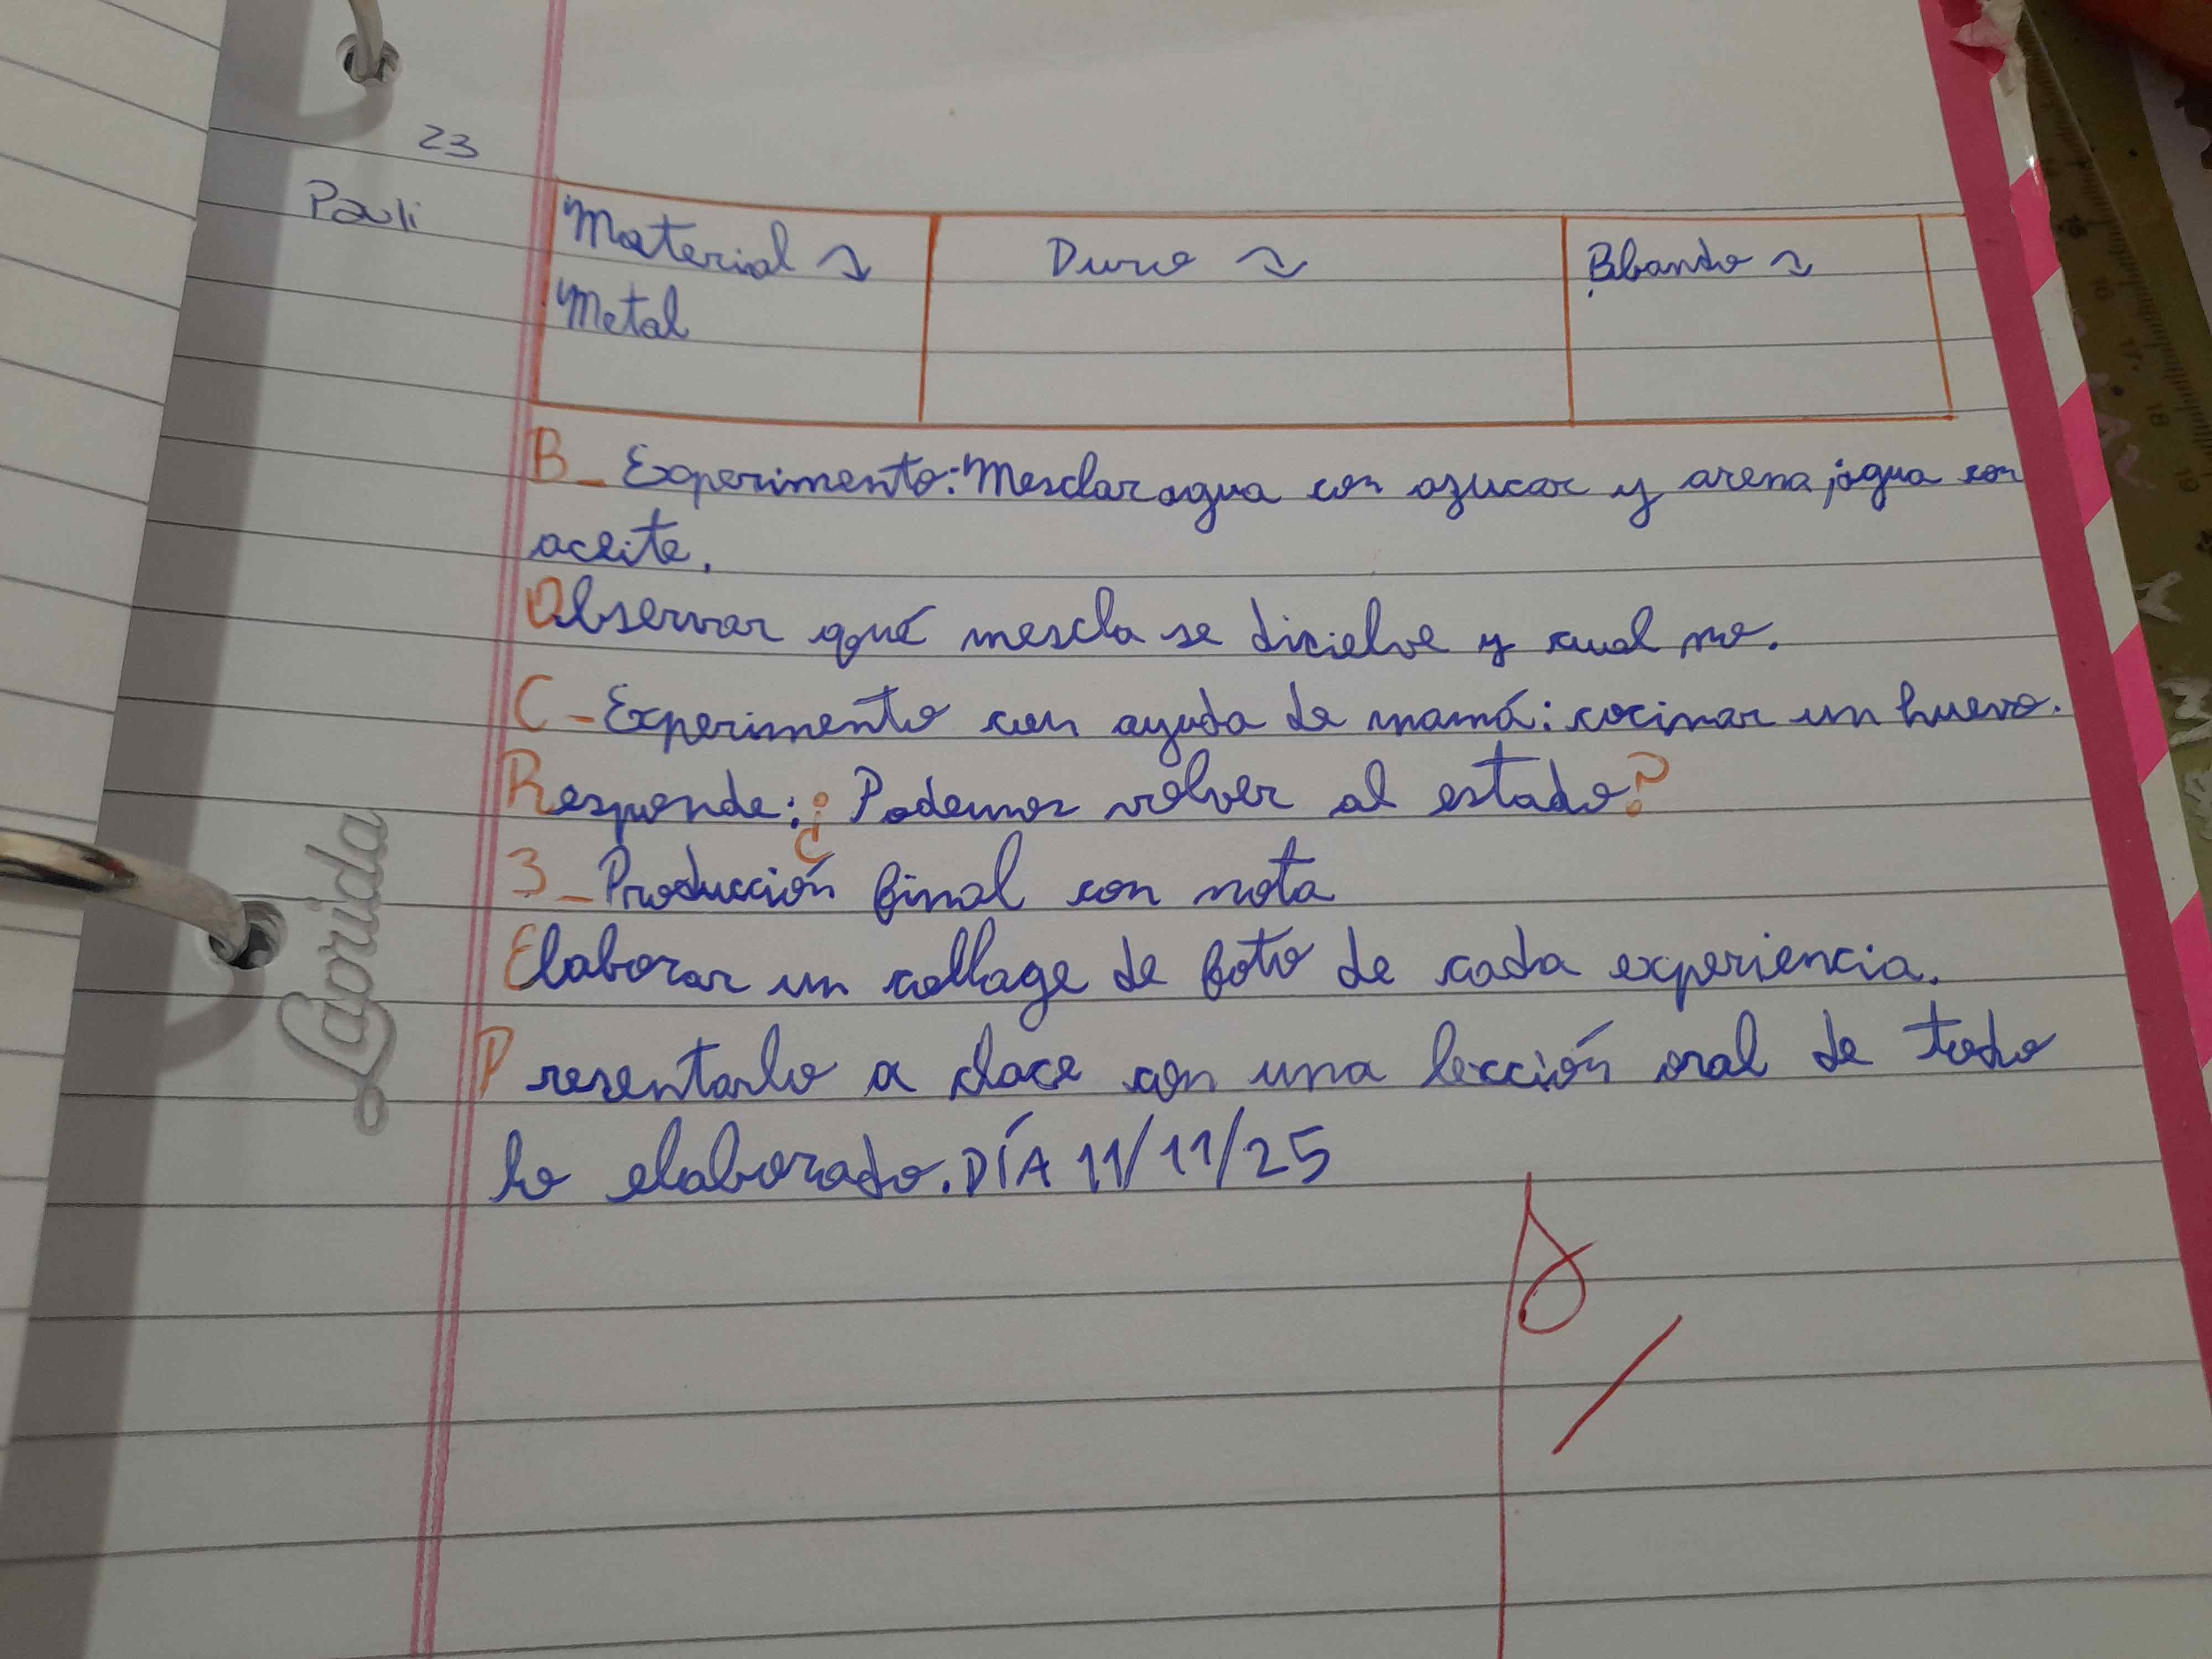 23
Pauli
Material Duro Blando
Metal
B_ Experimento: Mesclar agua con azucar y arena, agua con
aceite.
Observar qué mescla se dicielve y cual no.
C-Experimento con ayuda de mamá: cocinar un huevo.
Responde: ¿Podemos volver al estado?
3_Producción final con nota
Elaborar un collage de foto de cada experiencia.
Presentarlo a clace con una lección oral de todo
lo elaborado. DÍA 11/11/25
Laorida